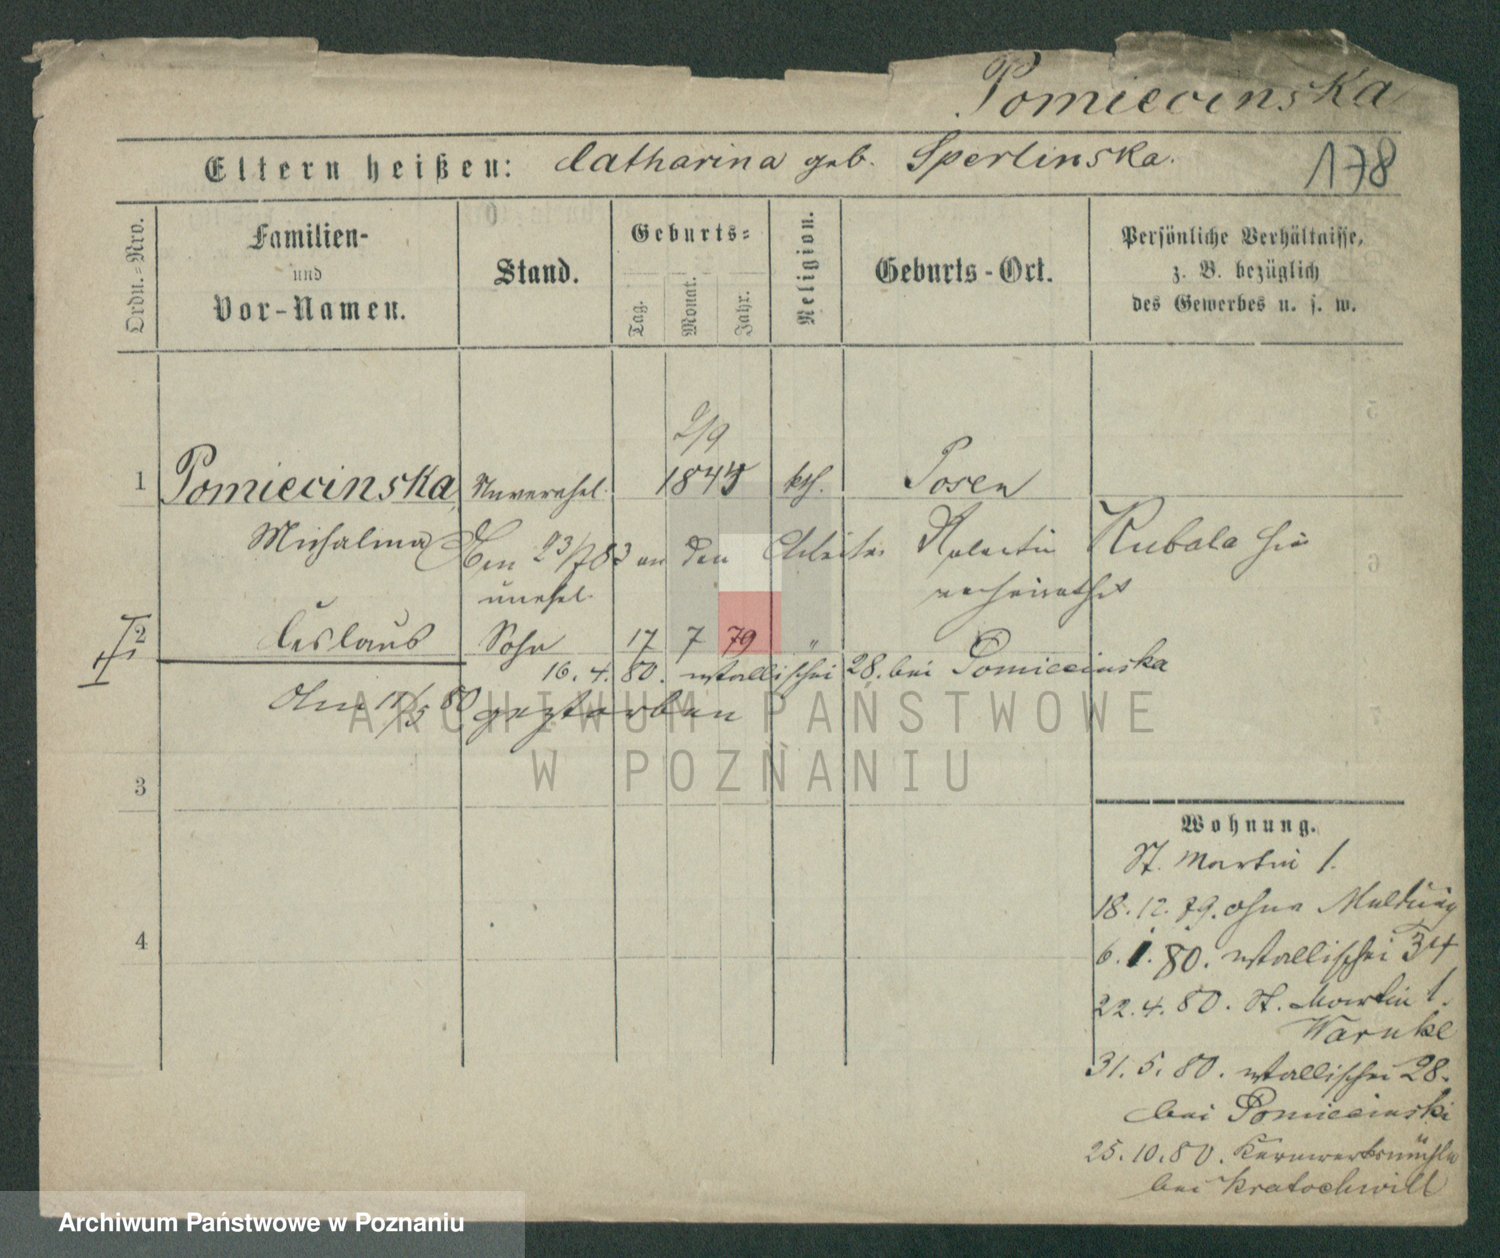 Pomiecinska
Eltern heißen: Catharina geb. Sperlinska.
178
Ordn.-Nro.
Familien-
und
Vor-Namen.
Stand.
Geburts-
Tag.
Monat.
Jahr.
Religion.
Geburts-Ort.
Persönliche Verhältnisse,
z. B. bezüglich
des Gewerbes u. s. w.
2/9
1 Pomiecinska, Unverehel. 1845 kth. Posen
Michalina Den 23/7 83 an den Arbeiter Valentin Kubala hier
verheirathet
unehel.
2 Ceslaus Sohn 17 7 79 "
16. 4. 80. Wallischei 28. bei Pomiecinska
Am 11/5 80 gestorben
ARCHIWUM PAŃSTWOWE
W POZNANIU
3
Wohnung.
St. Martin 1.
18. 12. 79. ohne Meldung
4
6. 1. 80. Wallischei 34
22. 4. 80. St. Martin 1.
Warnke
31. 5. 80. Wallischei 28.
bei Pomiecinski
25. 10. 80. Kernwerksmühle
bei Kratochwill
Archiwum Państwowe w Poznaniu